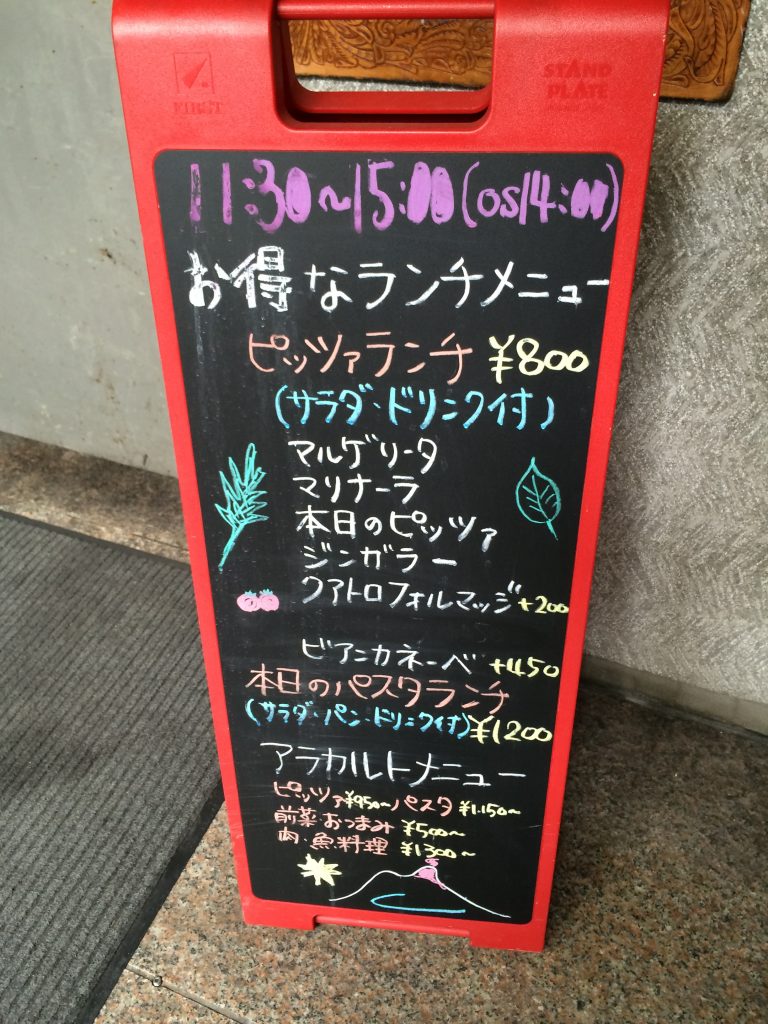 FIRST
STAND
PLATE
11:30~15:00(os14:00)
お得なランチメニュー
ピッツァランチ ¥800
(サラダ・ドリンク付)
マルゲリータ
マリナーラ
本日のピッツァ
ジンガラー
クアトロフォルマッジ+200
ビアンカネーベ +450
本日のパスタランチ
(サラダ・パン・ドリンク付)¥1200
アラカルトメニュー
ピッツァ¥950~パスタ ¥1.150~
前菜・おつまみ ¥500~
肉・魚料理 ¥1300~